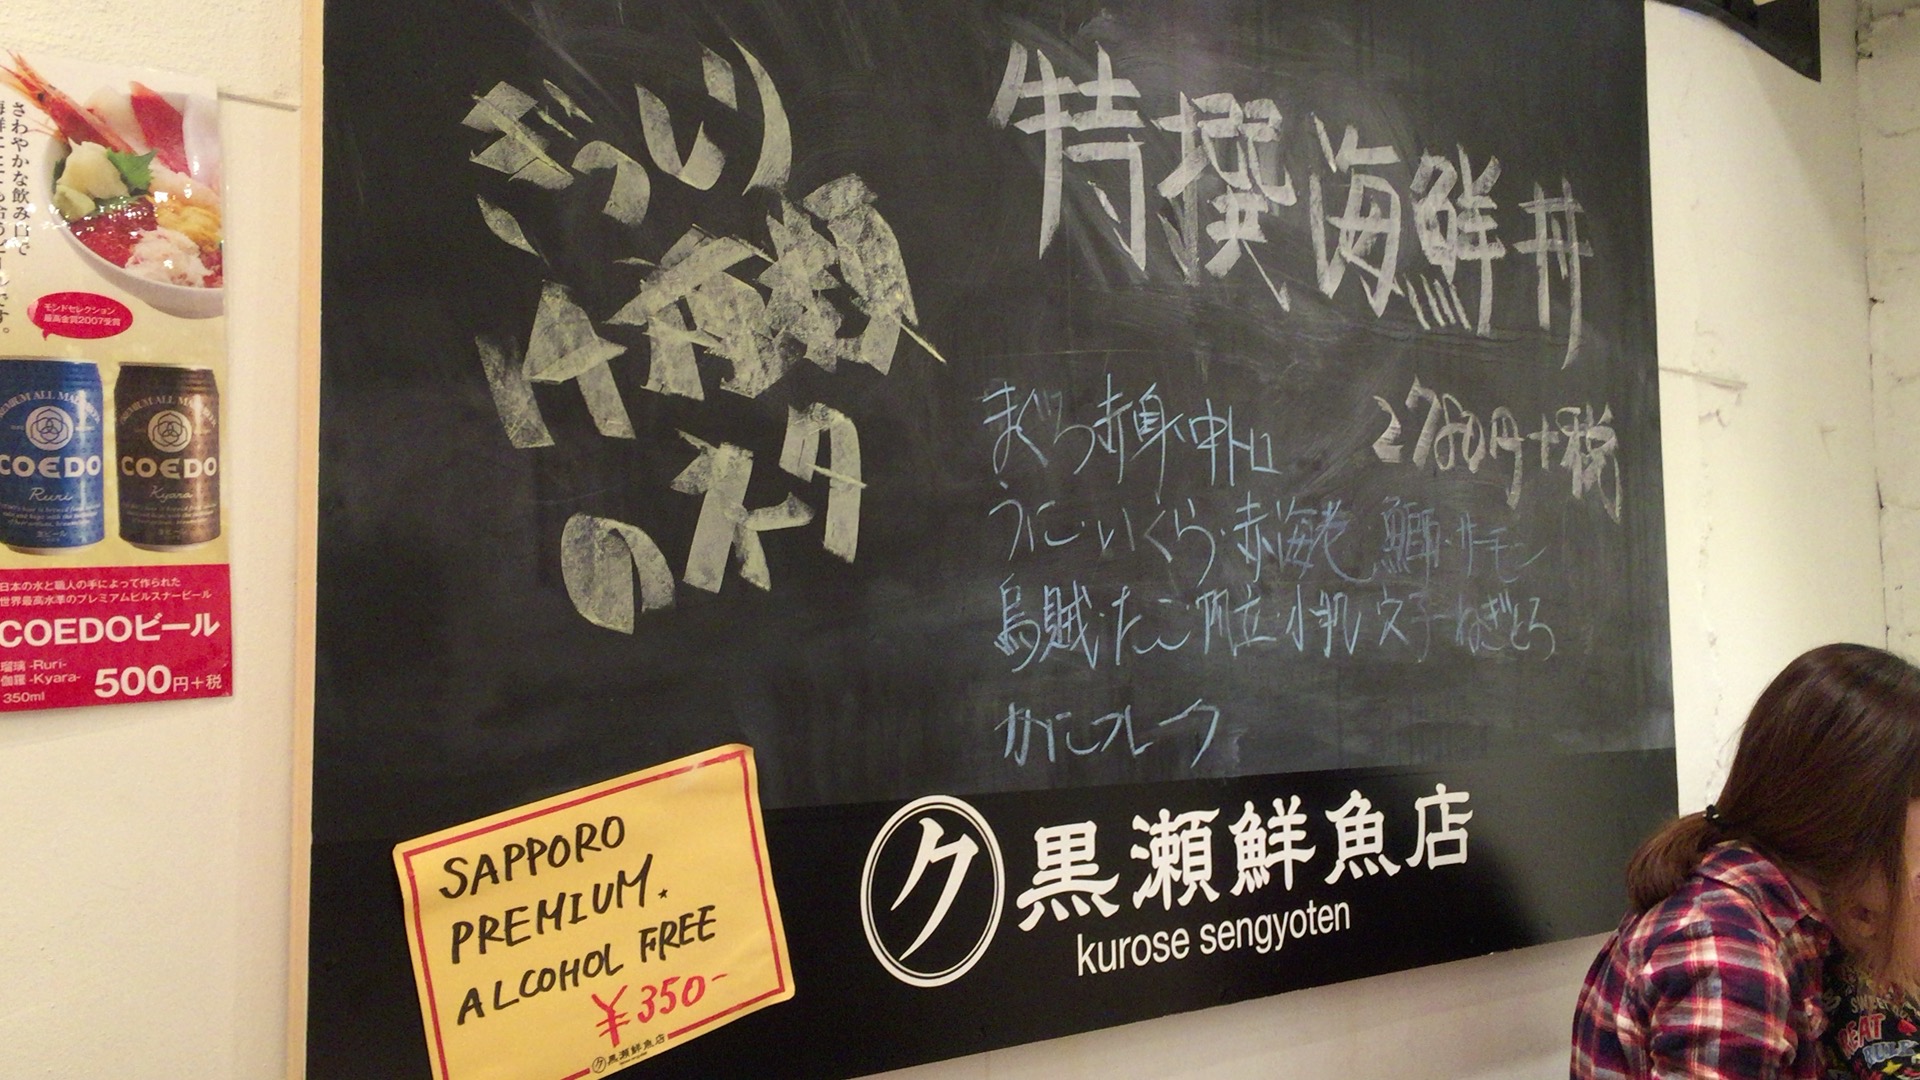 さわやかな飲み口で
モンドセレクション
最高金賞2007受賞
PREMIUM ALL MALT
COEDO
Ruri
PREMIUM ALL MALT
COEDO
Kyara
日本の水と職人の手によって作られた
世界最高水準のプレミアムピルスナービール
COEDOビール
瑠璃 -Ruri-
伽羅 -Kyara-
350ml
500円+税
ぎっしり
の ネタ
特撰海鮮丼
2780円+税
まぐろ赤身・中トロ
うに・いくら・赤海老・鰤・サーモン
烏賊・たこ・帆立・小肌・穴子・ねぎとろ
かにフレーク
SAPPORO
PREMIUM.
ALCOHOL FREE
¥350-
ク黒瀬鮮魚店
ク 黒瀬鮮魚店
kurose sengyoten
SWEET
EAT
RULE